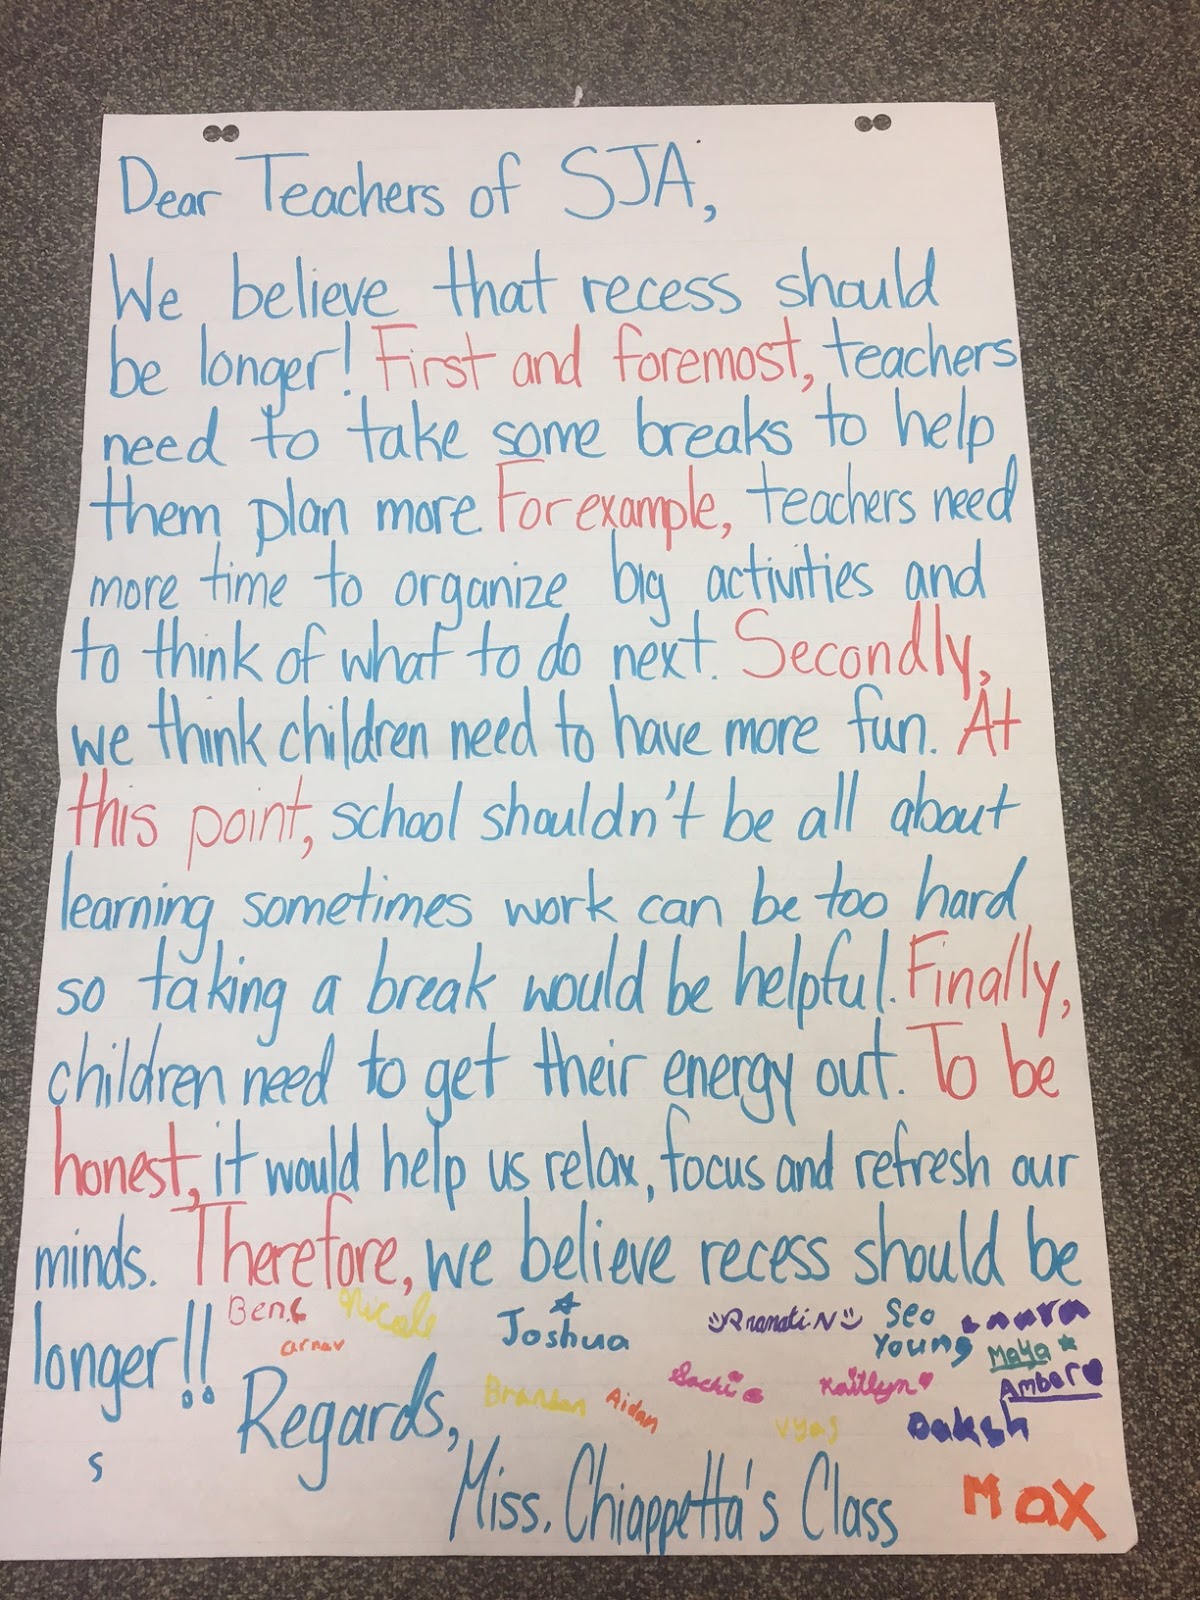 Dear Teachers of SJA,
We believe that recess should
be longer! First and foremost, teachers
need to take some breaks to help
them plan more For example, teachers need
more time to organize big activities and
to think of what to do next. Secondly,
we think children need to have more fun. At
this point, school shouldn't be all about
learning sometimes work can be too hard
so taking a break would be helpful. Finally,
children need to get their energy out. To be
honest, it would help us relax, focus and refresh our
minds. Therefore, we believe recess should be
longer!!
Ben.C Nicole Joshua Pranati.N Seo Young Laura
arnav Maya
Brandan Aidan Sachi Kaitlyn Amber
Vyas Daksh
Regards,
s
Miss. Chiappetta's Class
Max